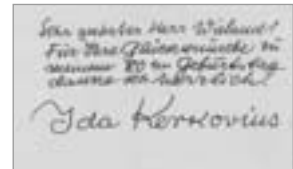 Sehr geehrter Herr Wieland!
Für Ihre Glückwünsche zu
meinem 80 en Geburtstag
danke ich herzlich!
Ida Kerkovius